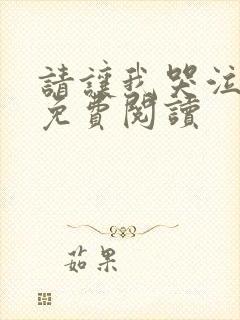 請讓我哭泣
免費閱讀
茹果